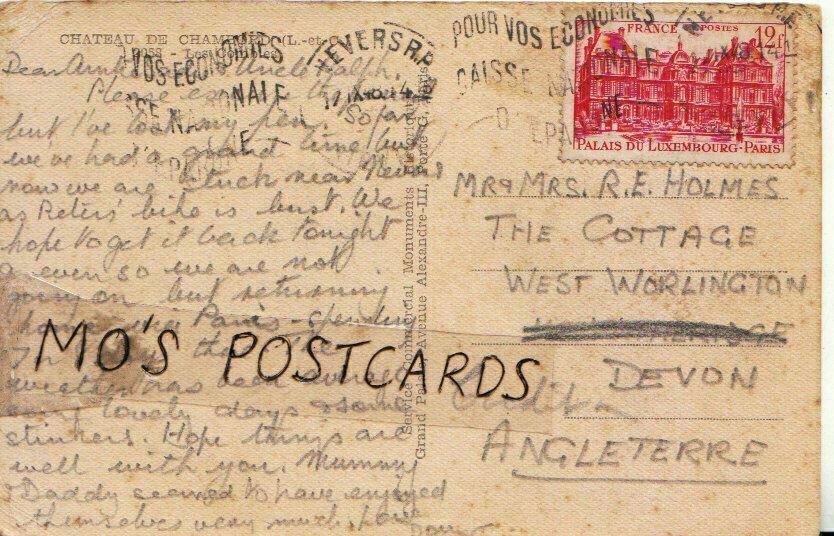 CHATEAU DE CHAMBORD (L.-et-C.)
Les Combles
Dear Uncle Ralph,
Please
but I've lost my pen. So far
we've had a grand time but
now we are stuck near Nevers
as Peters' bike is bust. We
hope to get it back tonight
even so we are not
going on but returning
home via Paris - spending
weather has been
some lovely days & some
stinkers. Hope things are
well with you. Mummy
& Daddy seemed to have enjoyed
themselves very much. Love
Service Commercial Monuments Historiques
Grand Palais, Avenue Alexandre-III, Porte G, Paris
POUR VOS ECONOMIES
CAISSE NATIONALE
D'EPARGNE
VOS ECONOMIES
NATIONALE
NEVERS R.P.
FRANCE POSTES 12f
PALAIS DU LUXEMBOURG-PARIS
MR & MRS. R.E. HOLMES
THE COTTAGE
WEST WORLINGTON
DEVON
ANGLETERRE
MO'S POSTCARDS